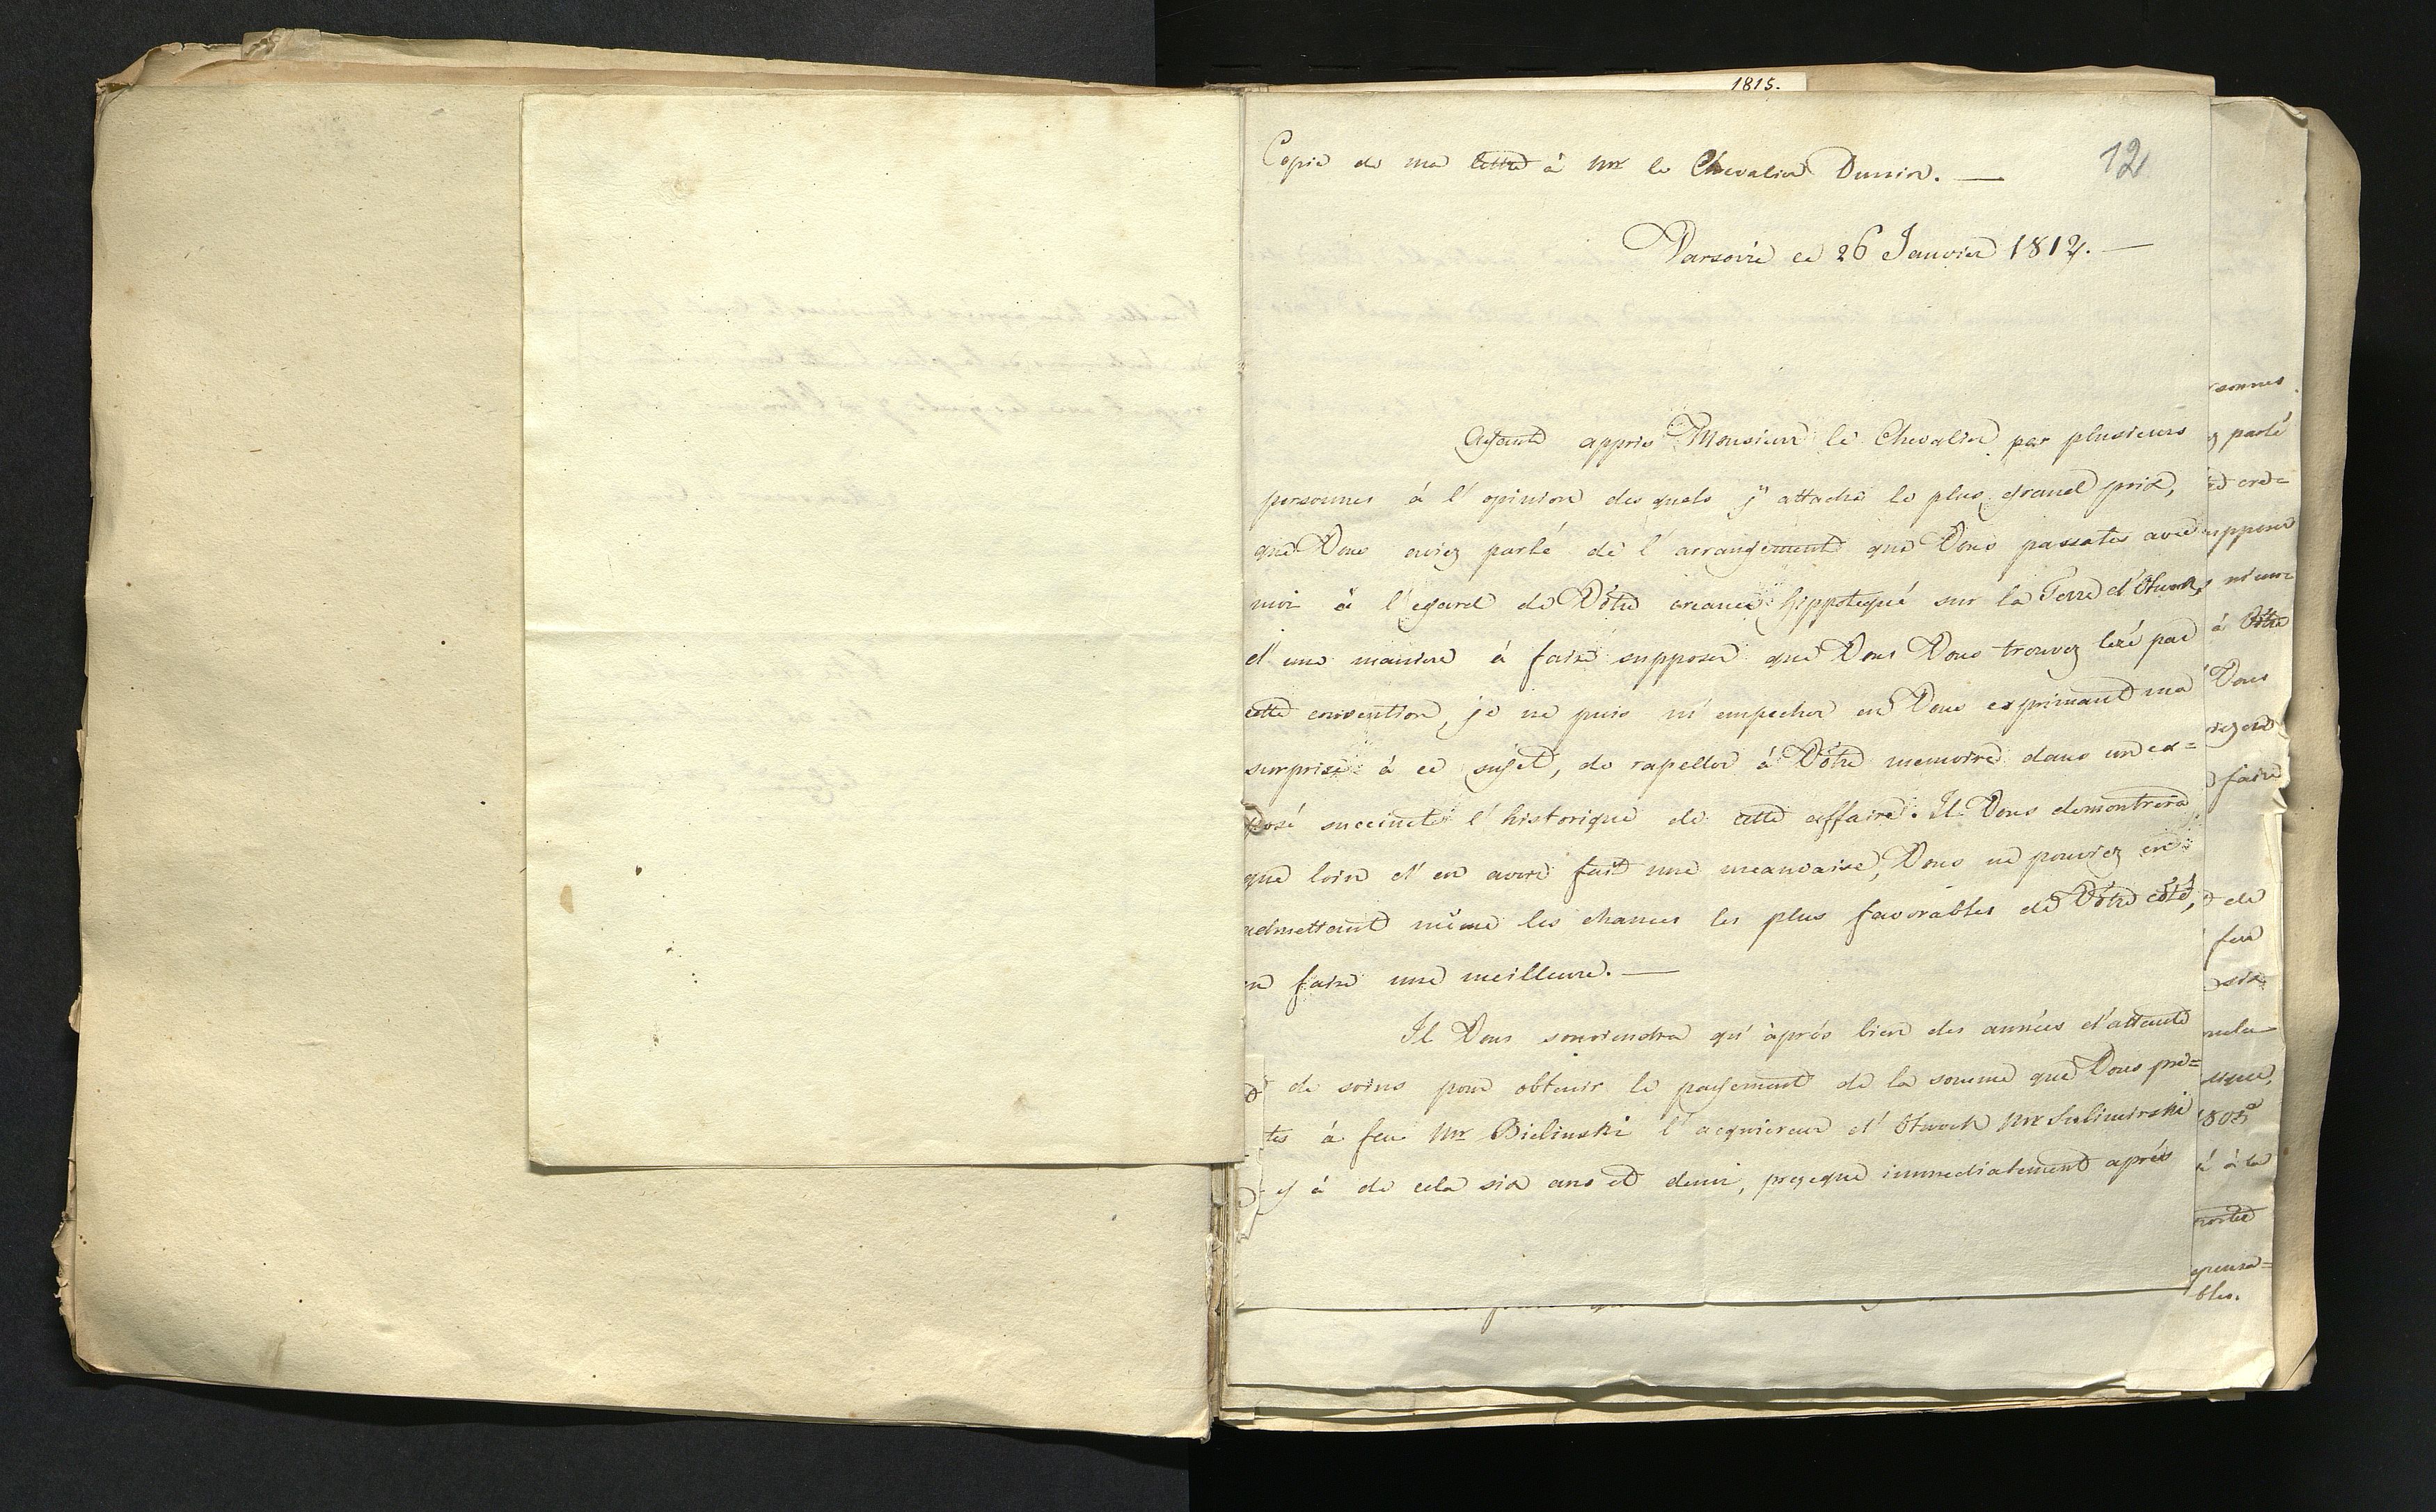 1815.
12
Copie de ma lettre à Mr le Chevalier Dunin. —
Varsovie ce 26 Janvier 1812. —
Ayant appris Monsieur le Chevalier par plusieurs
personnes à l'opinion des quels j'attache le plus grand prix,
que Vous aviez parlé de l'arrangement que Vous passates avec
moi à l'egard de Vôtre creance hippotequé sur la Terre d'Otwock,
d'une maniere à faire supposer que Vous Vous trouvez lezé par
cette convention, je ne puis m'empecher en Vous exprimant ma
surprise à ce sujet, de rapeller à Vôtre memoire dans un ex=
posé succinct l'historique de cette affaire. Il Vous demontrera
que loin d'en avoir fait une mauvaise, Vous ne pouviez en
admettant même les chances les plus favorables de Vôtre côté,
en faire une meilleure. —
Il Vous souviendra qu'àprés bien des années d'attente
de soins pour obtenir le payement de la somme que Vous pre=
tes à feu Mr Bielinski l'acquiereur d'Otwock Mr Sulimirski
y à de cela six ans et demi, presque immediatement aprés
sonnes
parlé
cre=
suppose
à Vôtre
Vous
faire
de
feu
six
1805
à la
bles.